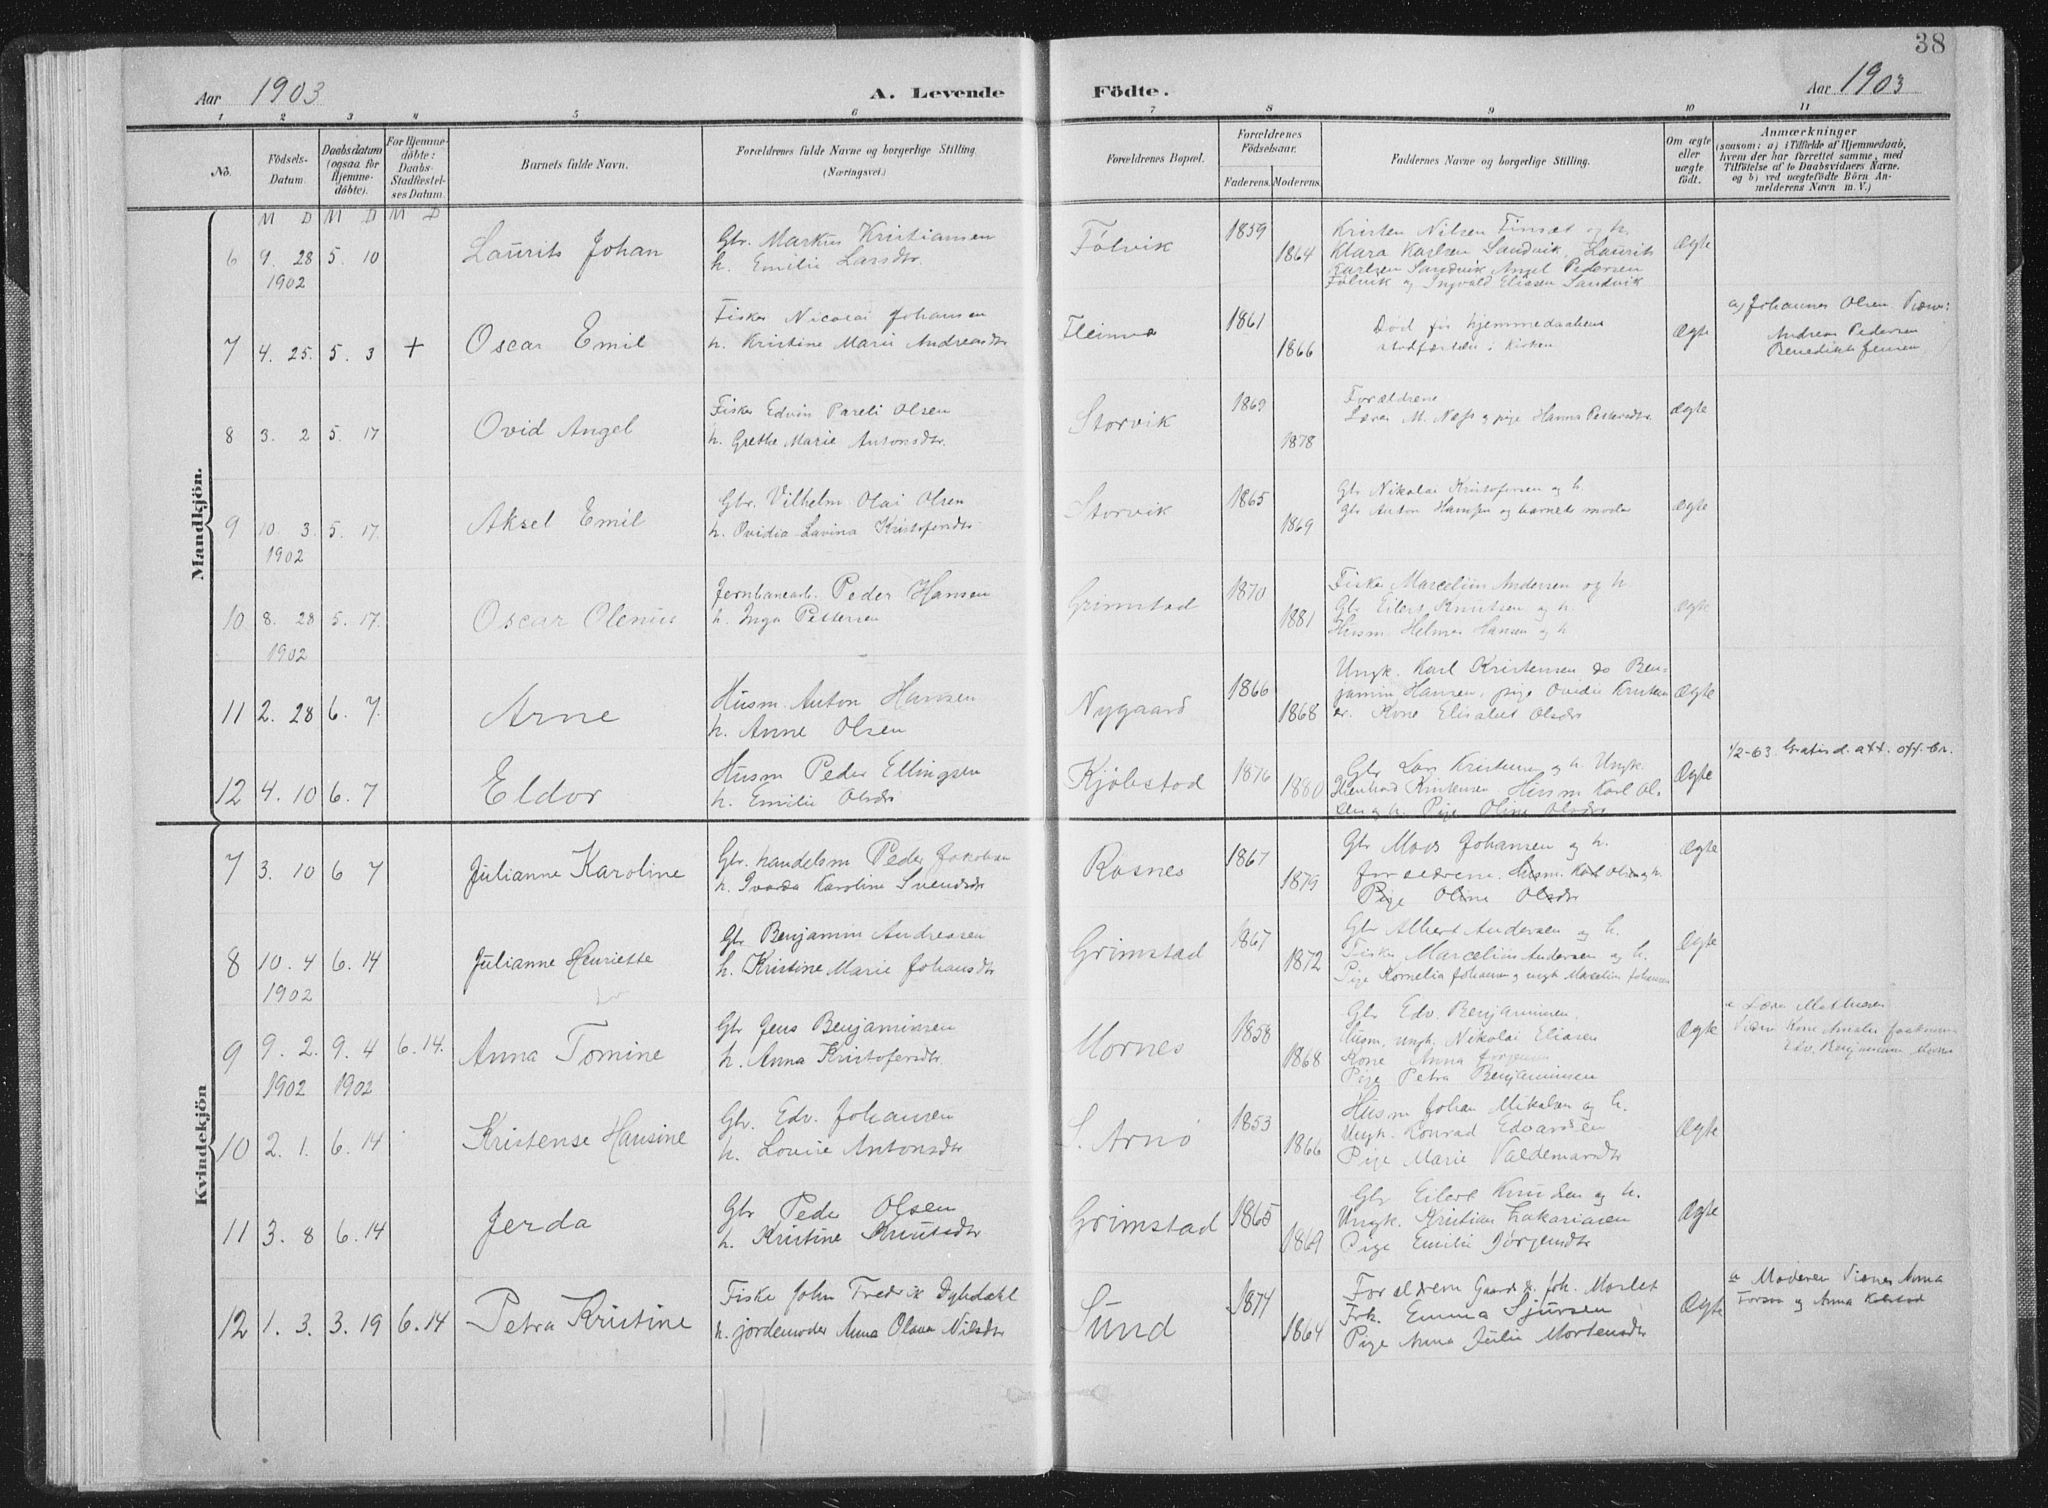 38
Aar 1903
A. Levende Födte.
Aar 1903
1 2 3 4 5 6 7 8 9 10 11
No.
Födsels-
Datum.
Daabsdatum
(ogsaa for
Hjemme-
döbte).
For Hjemme-
döbte:
Daabs-
Stadfæstel-
ses Datum.
Barnets fulde Navn.
Forældrenes fulde Navne og borgerlige Stilling.
(Næringsvei.)
Forældrenes Bopæl.
Forældrenes
Födselsaar.
Faderens. Moderens.
Faddernes Navne og borgerlige Stilling.
Om ægte
eller
uægte
födt.
Anmærkninger
(saasom: a) i Tilfælde af Hjemmedaab,
hvem der har forrettet samme, med
Tilföielse af to Daabsvidners Navne.
og b) ved uægtefödte Börn An-
melderens Navn m. V.)
M D M D M D
Mandkjön.
6 9. 28 5. 10 Laurits Johan
1902
Gbr. Markus Kristiansen
h. Emilie Larsdtr.
Følvik 1859 1864
Kristen Nilsen Finsæt og h.
Klara Karlsen Sandvik, Laurits
Karlsen Sandvik Angel Pedersen
Følvik og Ingvald Eliasen Sandvik
Ægte
7 4. 25. 5. 3 + Oscar Emil
Fisker Nicolai Johansen
h. Kristine Marie Andreasdtr
Fleinvæ 1861 1866
Död før hjemmedaabens
stadfæstelse i kirken
Ægte
a) Johannes Olsen Vidner:
Andreas Pedersen
Benedikte Jensen
8 3. 2 5. 17 Ovid Angel
Fisker Edvin Pareli Olsen
h. Grethe Marie Antonsdtr.
Storvik 1869 1878
Forældrene
Lærer M. Næss og pige Hanna Pettersdtr.
Ægte
9 10. 3 5. 17. Aksel Emil
1902
Gbr. Vilhelm Olai Olsen
h. Ovidia Lavina Kristofersdtr
Storvik 1865 1869
Gbr Nikolai Kristofersen og h.
Gbr Anton Hansen og barnets moder
Ægte
10 8. 28 5. 17. Oscar Olenius
1902
Jernbanearb. Peder Hansen
h. Inga Pettersen
Grimstad 1870 1881
Fisker Marcelius Andersen og h
Gbr Eilert Knutsen og h.
Husm. Helmer Hansen og h
Ægte
11 2. 28 6. 7. Arne
Husm. Anton Hansen
h. Anne Olsen
Nygaard 1866 1868
Ungk. Karl Kristensen do Ben-
jamin Hansen, pige Ovidie Kristen
Kone Elisabet Olsdtr
Ægte
12 4. 10 6. 7 Eldor
Husm Peder Ellingsen
h. Emilie Olsdtr
Kjøbstad 1876 1880
Gbr Lars Kristensen og h. Ungk.
Kristensen. Husm Karl Ol-
sen og h. Pige Oline Olsdtr
Ægte
1/2-63. Gratis d. att. off. br.
Kvindekjön
7 3. 10 6 7 Julianne Karoline
Gbr. handelsm Peder Jakobsen
h. Ivarda Karoline Svendsdtr
Rosnes 1867 1879
Gbr Mads Johansen og h.
forældrene. Husm. Karl Olsen og h.
Pige Oline Olsdtr
Ægte
8 10. 4 6. 14 Julianne Henriette
1902
Gbr Benjamin Andreasen
h. Kristine Marie Johansdtr
Grimstad 1867 1872
Gbr Albert Andersen og h.
Fisker Marcelius Andersen og h.
Pige Kornelia Johansen og ungk Marcelius Johansen
Ægte
9 9. 2. 9. 4 6. 14. Anna Tomine
1902 1902
Gbr Jens Benjaminsen
h. Anna Kristofersdtr.
Mornes 1858 1868
Gbr Edv. Benjaminsen,
Husm, ungk. Nikolai Eliasen
Kone Anna Jensen
Pige Petra Benjaminsen
Ægte
a Lærer Mathisen
Vidn Kone Amalie Jakobsen
Edv. Benjaminsen Mornes
10 2. 1. 6. 14 Kristense Hansine
Gbr. Edv. Johansen
h. Lovise Antonsdtr
S. Arnø 1853 1866
Husm Johan Mikalsen og h.
Ungk. Konrad Edvardsen
Pige Marie Valdemarsdtr
Ægte
11 3. 8 6. 14 Jerda
Gbr Peder Olsen
h. Kristine Knutsdtr
Grimstad 1865 1869
Gbr Eilert Knudsen og h.
Ungk. Kristian Zakariasen
Pige Emilie Jørgensdtr
Ægte
12 1. 3. 3. 19 6. 14 Petra Kristine
Fisker John Fredrik Dybdahl
h. jordemoder Anna Olava Nilsdtr
Sund 1874 1864
Forældrene Gaardbr. Joh. Morlet
Frk. Emma Sjursen
Pige Anna Julie Mortensdtr
Ægte
a Moderen Vidner Anna
og Anna Kobstad